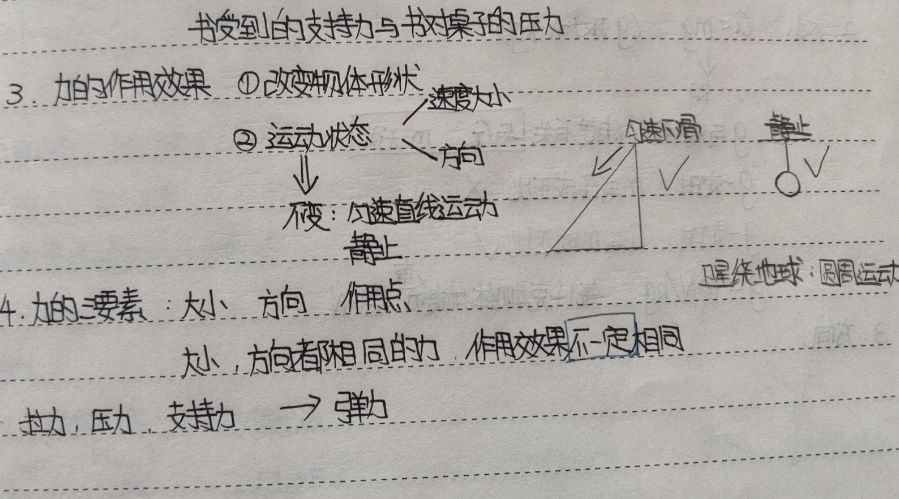 书受到的支持力与书对桌子的压力
3. 力的作用效果 ①改变物体形状
②运动状态 速度大小
方向
匀速下滑 静止
不变：匀速直线运动
静止
卫星绕地球：圆周运动
4. 力的三要素：大小 方向 作用点
大小，方向都相同的力，作用效果不一定相同
拉力，压力，支持力 → 弹力